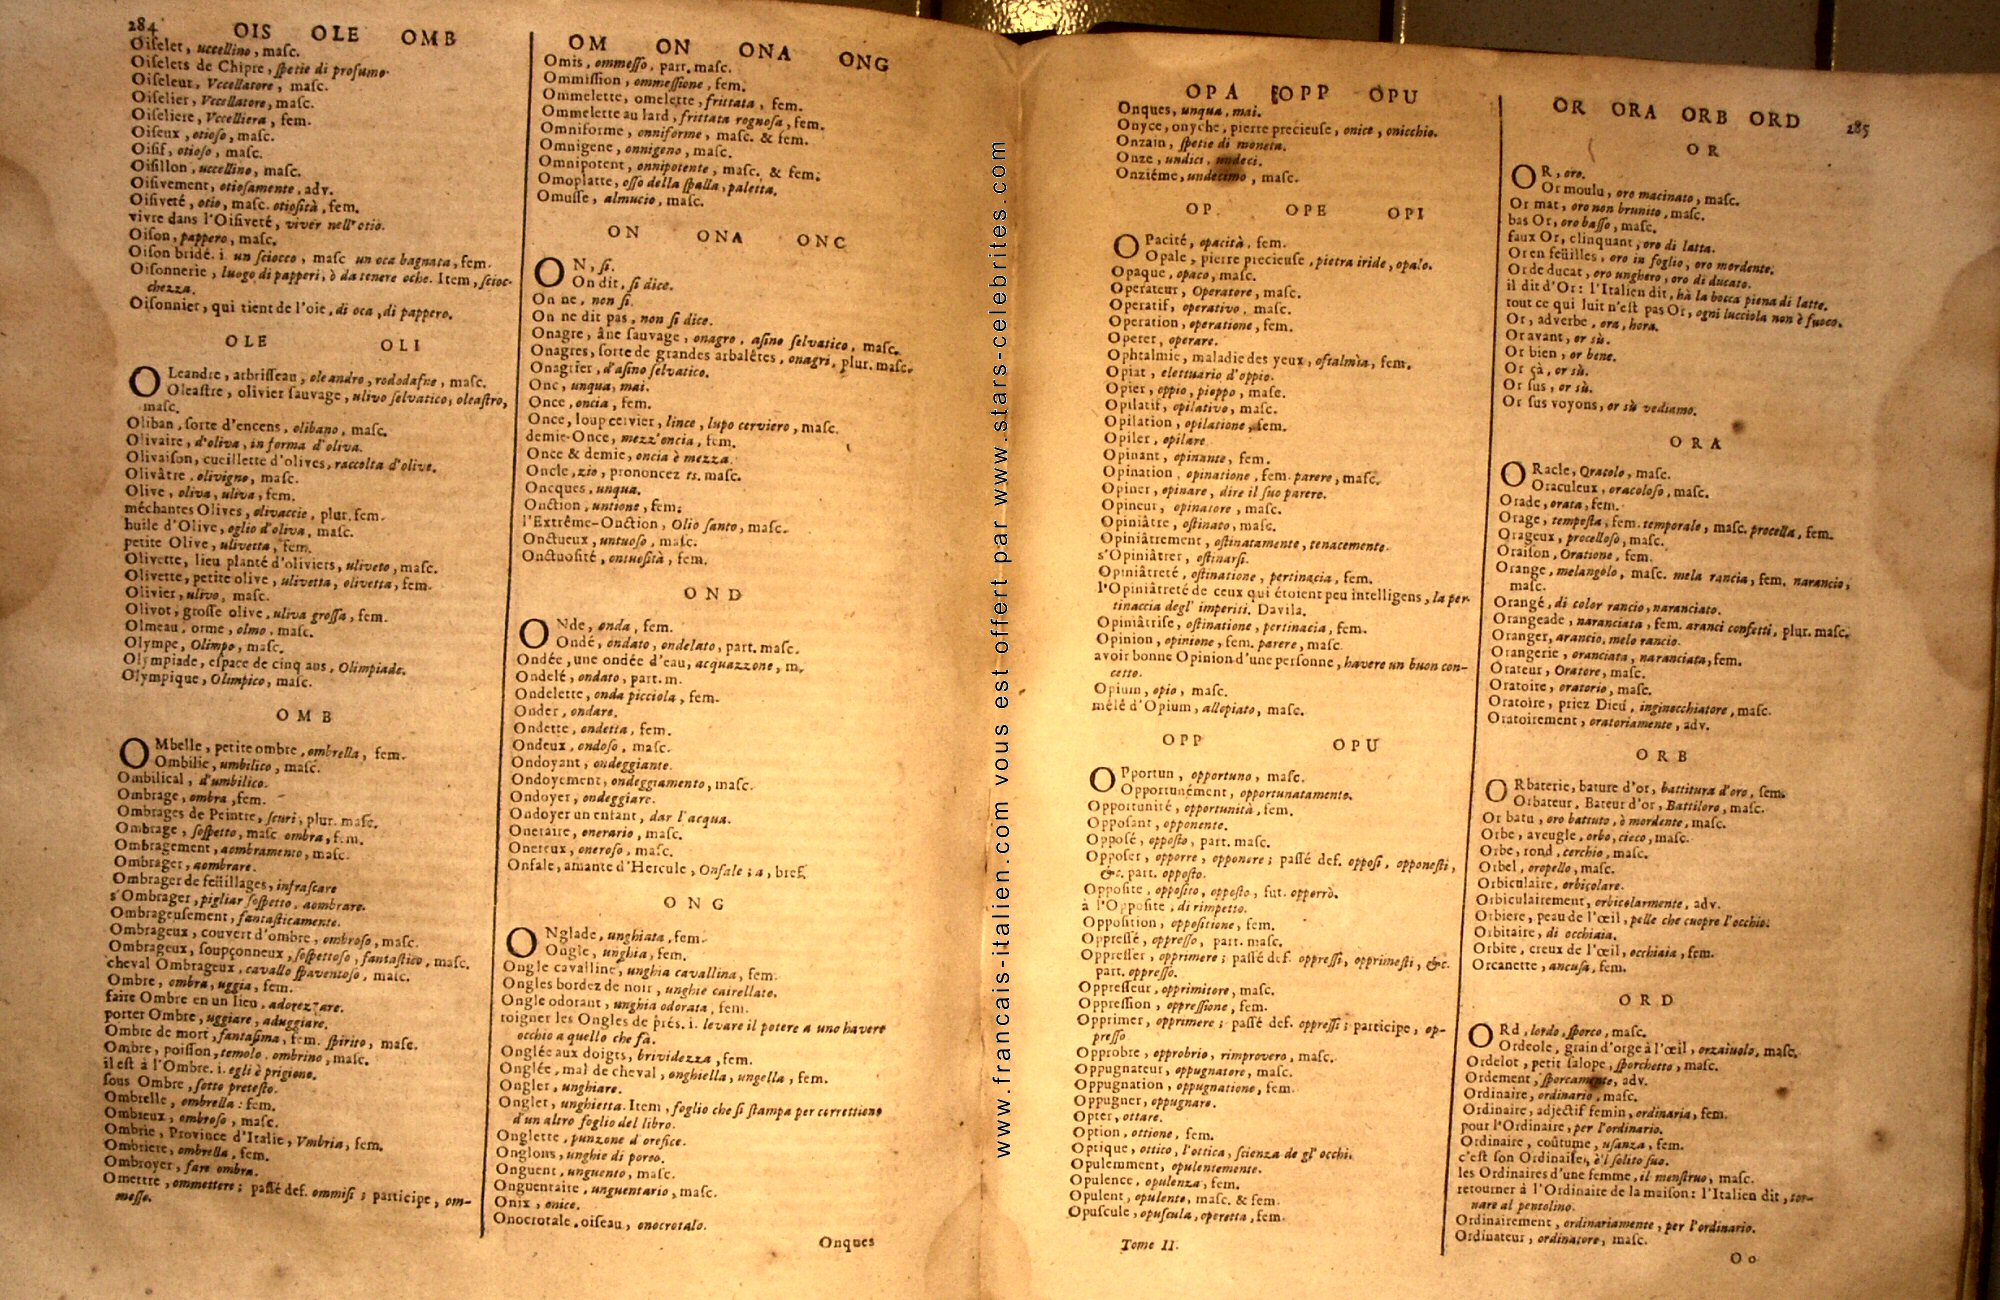 284 OIS OLE OMB
Oiſelet, uccellino, maſc.
Oiſelets de Chipre, ſpetie di profumo.
Oiſeleur, Vccellatore, maſc.
Oiſelier, Vccellatore, maſc.
Oiſeliere, Vccelliera, fem.
Oiſeux, otioſo, maſc.
Oiſif, otioſo, maſc.
Oiſillon, uccellino, maſc.
Oiſivement, otioſamente, adv.
Oiſiveté, otio, maſc. otioſità, fem.
vivre dans l'Oiſiveté, viver nell'otio.
Oiſon, pappero, maſc.
Oiſon bridé. i. un ſciocco, maſc un oca bagnata, fem.
Oiſonnerie, luogo di papperi, ò da tenere oche. Item, ſcioc-
chezza.
Oiſonnier, qui tient de l'oie, di oca, di pappero.
OLE OLI
OLeandre, arbriſſeau, oleandro, rododafne, maſc.
Oleaſtre, olivier ſauvage, ulivo ſelvatico, oleaſtro,
maſc.
Oliban, ſorte d'encens, olibano, maſc.
Olivaire, d'oliva, in forma d'oliva.
Olivaiſon, cueillette d'olives, raccolta d'olive.
Olivâtre, olivigno, maſc.
Olive, oliva, uliva, fem.
méchantes Olives, olivaccie, plur. fem.
huile d'Olive, oglio d'oliva, maſc.
petite Olive, ulivetta, fem.
Olivette, lieu planté d'oliviers, uliveto, maſc.
Olivette, petite olive, ulivetta, olivetta, fem.
Olivier, ulivo, maſc.
Olivot, groſſe olive, uliva groſſa, fem.
Olmeau, orme, olmo, maſc.
Olympe, Olimpo, maſc.
Olympiade, eſpace de cinq ans, Olimpiade.
Olympique, Olimpico, maſc.
OMB
OMbelle, petite ombre, ombrella, fem.
Ombilic, umbilico, maſc.
Ombilical, d'umbilico.
Ombrage, ombra, fem.
Ombrages de Peintre, ſcuri, plur. maſc.
Ombrage, ſoſpetto, maſc ombra, fem.
Ombragement, aombramento, maſc.
Ombrager, aombrare.
Ombrager de feüillages, infraſcare
s'Ombrager, pigliar ſoſpetto, aombrare.
Ombrageuſement, fantaſticamente.
Ombrageux, couvert d'ombre, ombroſo, maſc.
Ombrageux, ſoupçonneux, ſoſpettoſo, fantaſtico, maſc.
cheval Ombrageux, cavallo ſpaventoſo, maſc.
Ombre, ombra, uggia, fem.
faire Ombre en un lieu, adorezzare.
porter Ombre, uggiare, aduggiare.
Ombre de mort, fantaſima, fem. ſpirito, maſc.
Ombre, poiſſon, temolo, ombrino, maſc.
il eſt à l'Ombre. i. egli è prigione.
ſous Ombre, ſotto preteſto.
Ombrelle, ombrella: fem.
Ombreux, ombroſo, maſc.
Ombrie, Province d'Italie, Vmbria, fem.
Ombriere, ombrella, fem.
Ombroyer, fare ombra.
Omettre, ommettere; paſſé def. ommiſi; participe, om-
meſſo.
OM ON ONA ONG
Omis, ommeſſo, part. maſc.
Ommiſſion, ommeſſione, fem.
Ommelette, omelette, frittata, fem.
Ommelette au lard, frittata rognoſa, fem.
Omniforme, onniforme, maſc. & fem.
Omnigene, onnigeno, maſc.
Omnipotent, onnipotente, maſc. & fem.
Omoplatte, oſſo della ſpalla, paletta.
Omuſſe, almucio, maſc.
ON ONA ONC
ON, ſi.
On dit, ſi dice.
On ne, non ſi.
On ne dit pas, non ſi dice.
Onagre, âne ſauvage, onagro, aſino ſelvatico, maſc.
Onagres, ſorte de grandes arbalêtes, onagri, plur. maſc.
Onagrier, d'aſino ſelvatico.
Onc, unqua, mai.
Once, oncia, fem.
Once, loup cervier, lince, lupo cerviero, maſc.
demie-Once, mezz'oncia, fem.
Once & demie, oncia è mezza.
Oncle, zio, prononcez ts. maſc.
Oncques, unqua.
Onction, untione, fem.
l'Extrême-Onction, Olio ſanto, maſc.
Onctueux, untuoſo, maſc.
Onctuoſité, ontuoſità, fem.
OND
ONde, onda, fem.
Ondé, ondato, ondelato, part. maſc.
Ondée, une ondée d'eau, acquazzone, m.
Ondelé, ondato, part. m.
Ondelette, onda picciola, fem.
Onder, ondare.
Ondette, ondetta, fem.
Ondeux, ondoſo, maſc.
Ondoyant, ondeggiante.
Ondoyement, ondeggiamento, maſc.
Ondoyer, ondeggiare.
Ondoyer un enfant, dar l'acqua.
Oneraire, onerario, maſc.
Onereux, oneroſo, maſc.
Onfale, amante d'Hercule, Onfale; a, bref.
ONG
ONglade, unghiata, fem.
Ongle, unghia, fem.
Ongle cavalline, unghia cavallina, fem.
Ongles bordez de noir, unghie cairellate.
Ongle odorant, unghia odorata, fem.
roigner les Ongles de prés. i. levare il potere a uno havere
occhio a quello che fà.
Onglée aux doigts, brividezza, fem.
Onglée, mal de cheval, onghiella, ungella, fem.
Ongler, unghiare.
Onglet, unghietta. Item, foglio che ſi ſtampa per correttione
d'un altro foglio del libro.
Onglette, punzone d'orefice.
Onglons, unghie di porco.
Onguent, unguento, maſc.
Onguentaire, unguentario, maſc.
Onix, onice.
Onocrotale, oiſeau, onocrotalo.
Onques
www.francais-italien.com vous est offert par www.stars-celebrites.com
OPA OPP OPU
Onques, unqua, mai.
Onyce, onyche, pierre precieuſe, onice, onicchio.
Onzain, ſpetie di moneta.
Onze, undici, undeci.
Onziéme, undecimo, maſc.
OP OPE OPI
OPacité, opacità, fem.
Opale, pierre precieuſe, pietra iride, opalo.
Opaque, opaco, maſc.
Operateur, Operatore, maſc.
Operatif, operativo, maſc.
Operation, operatione, fem.
Operer, operare.
Ophtalmie, maladie des yeux, oftalmia, fem.
Opiat, elettuario d'oppio.
Opier, oppio, pioppo, maſc.
Opilatif, opilativo, maſc.
Opilation, opilatione, fem.
Opiler, opilare
Opinant, opinante, fem.
Opination, opinatione, fem. parere, maſc.
Opiner, opinare, dire il ſuo parere.
Opineur, opinatore, maſc.
Opiniâtre, oſtinato, maſc.
Opiniâtrement, oſtinatamente, tenacemente.
s'Opiniâtrer, oſtinarſi.
Opiniâtreté, oſtinatione, pertinacia, fem.
l'Opiniâtreté de ceux qui étoient peu intelligens, la per-
tinaccia degl' imperiti. Davila.
Opiniâtriſe, oſtinatione, pertinacia, fem.
Opinion, opinione, fem. parere, maſc
avoir bonne Opinion d'une perſonne, havere un buon con-
cetto.
Opium, opio, maſc.
mêlé d'Opium, allopiato, maſc.
OPP OPU
OPportun, opportuno, maſc.
Opportunément, opportunatamente.
Opportunité, opportunità, fem.
Oppoſant, opponente.
Oppoſé, oppoſto, part. maſc.
Oppoſer, opporre, opponere; paſſé def. oppoſi, opponeſti,
&c. part. oppoſto.
Oppoſite, oppoſito, oppoſto, fut. opporrò.
à l'Oppoſite, di rimpetto.
Oppoſition, oppoſitione, fem.
Oppreſſé, oppreſſo, part. maſc.
Oppreſſer, opprimere; paſſé def. oppreſſi, opprimeſti, &c.
part. oppreſſo.
Oppreſſeur, opprimitore, maſc.
Oppreſſion, oppreſſione, fem.
Opprimer, opprimere; paſſé def. oppreſſi; participe, op-
preſſo
Opprobre, opprobrio, rimprovero, maſc.
Oppugnateur, oppugnatore, maſc.
Oppugnation, oppugnatione, fem.
Oppugner, oppugnare.
Opter, ottare.
Option, ottione, fem.
Optique, ottico, l'ottica, ſcienza de gl'occhi.
Opulemment, opulentemente.
Opulence, opulenza, fem.
Opulent, opulente, maſc. & fem.
Opuſcule, opuſcula, operetta, fem.
Tome II.
OR ORA ORB ORD 285
OR
OR, oro.
Or moulu, oro macinato, maſc.
Or mat, oro non brunito, maſc.
bas Or, oro baſſo, maſc.
faux Or, clinquant, oro di latta.
Or en feüilles, oro in foglio, oro mordente.
Or de ducat, oro unghero, oro di ducato.
il dit d'Or: l'Italien dit, hà la bocca piena di latte.
tout ce qui luit n'eſt pas Or, ogni lucciola non è fuoco.
Or, adverbe, ora, hora.
Or avant, or sù.
Or bien, or bene.
Or çà, or sù.
Or ſus, or sù.
Or ſus voyons, or sù vediamo.
ORA
ORacle, Oracolo, maſc.
Oraculeux, oracoloſo, maſc.
Orade, orata, fem.
Orage, tempeſta, fem. temporale, maſc. procella, fem.
Orageux, procelloſo, maſc.
Oraiſon, Oratione, fem.
Orange, melangolo, maſc. mela rancia, fem. narancio,
maſc.
Orangé, di color rancio, naranciato.
Orangeade, naranciata, fem. aranci confetti, plur. maſc.
Oranger, arancio, melo rancio.
Orangerie, oranciata, naranciata, fem.
Orateur, Oratore, maſc.
Oratoire, oratorio, maſc.
Oratoire, priez Dieu, inginocchiatore, maſc.
Oratoirement, oratoriamente, adv.
ORB
ORbaterie, bature d'or, battitura d'oro, fem.
Orbateur, Bateur d'or, Battiloro, maſc.
Or batu, oro battuto, è mordente, maſc.
Orbe, aveugle, orbo, cieco, maſc.
Orbe, rond, cerchio, maſc.
Orbel, oropello, maſc.
Orbiculaire, orbicolare.
Orbiculairement, orbicolarmente, adv.
Orbiere, peau de l'œil, pelle che cuopre l'occhio.
Orbitaire, di occhiaia.
Orbite, creux de l'œil, occhiaia, fem.
Orcanette, ancuſa, fem.
ORD
ORd, lordo, ſporco, maſc.
Ordeole, grain d'orge à l'œil, orzaiuolo, maſc.
Ordelot, petit ſalope, ſporchetto, maſc.
Ordement, ſporcamente, adv.
Ordinaire, ordinario, maſc.
Ordinaire, adjectif femin, ordinaria, fem.
pour l'Ordinaire, per l'ordinario.
Ordinaire, coûtume, uſanza, fem.
c'eſt ſon Ordinaire, è'l ſolito ſuo.
les Ordinaires d'une femme, il menſtruo, maſc.
retourner à l'Ordinaire de la maiſon: l'Italien dit, tor-
nare al pentolino.
Ordinairement, ordinariamente, per l'ordinario.
Ordinateur, ordinatore, maſc.
Oo